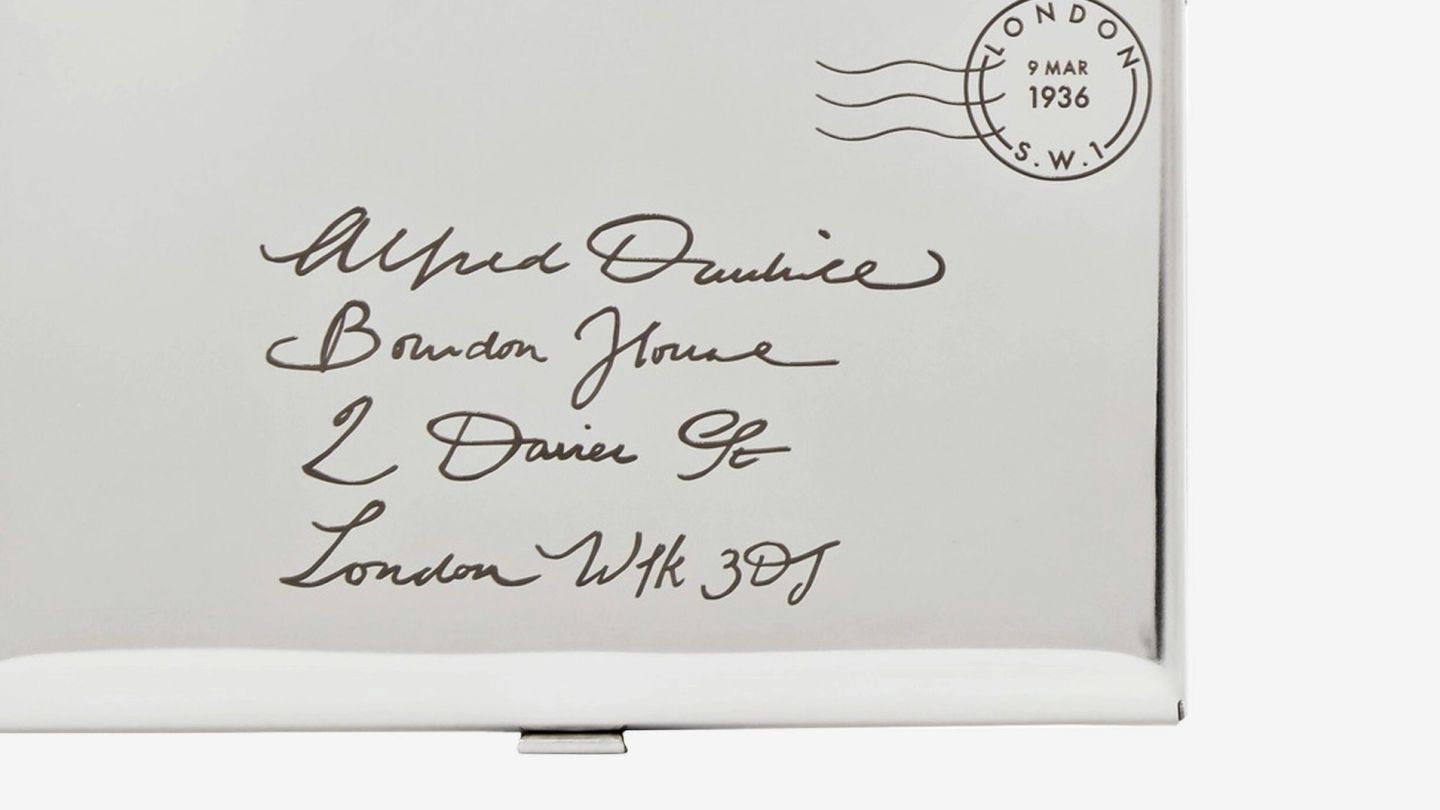 LONDON
9 MAR
1936
S.W.1
Alfred Dunhill
Bourdon House
2 Davies St
London W1k 3DJ